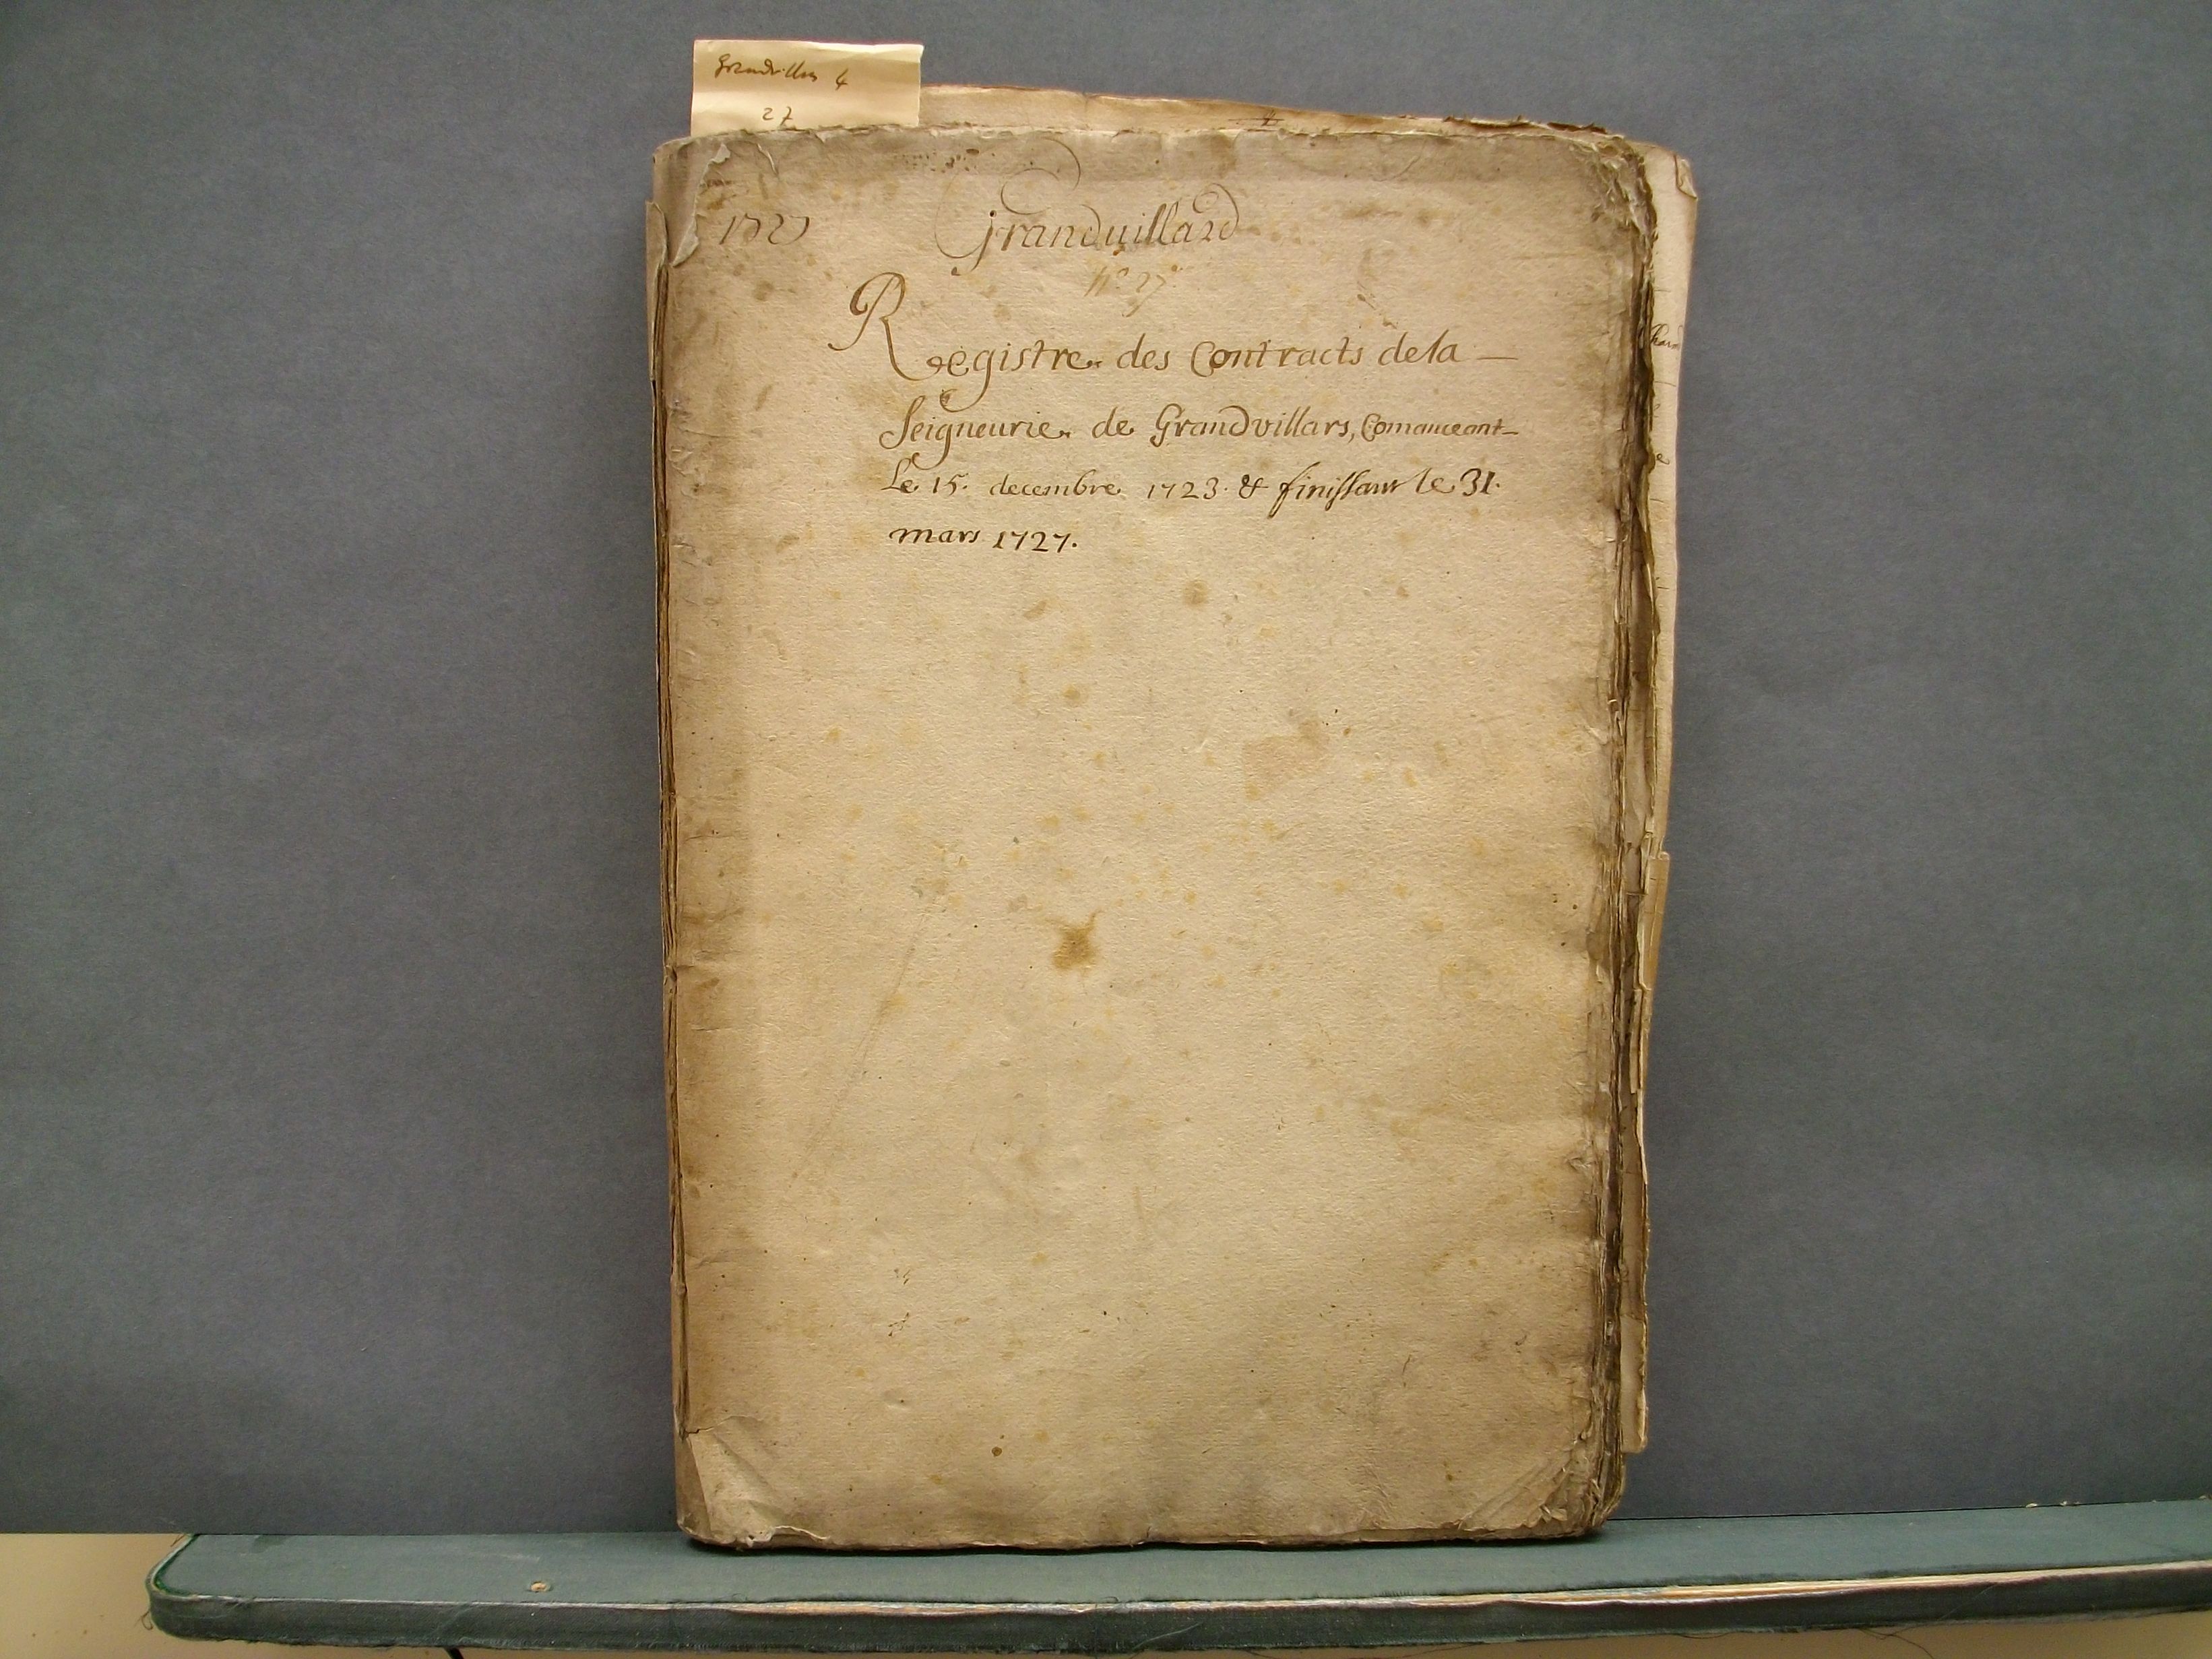 Grandvillars 4
27
1727
Granduillard
N° 27
Registre des Contracts de la
Seigneurie de Grandvillars, Comanceant
Le 15. decembre 1723. & finissant le 31.
mars 1727.